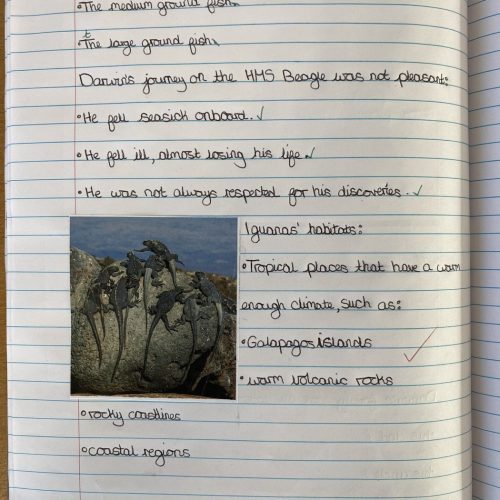 •The medium ground fish.
•The large ground fish.
Darwin's journey on the HMS Beagle was not pleasant:
•He fell seasick onboard.
•He fell ill, almost losing his life.
•He was not always respected for his discoveries.
Iguanas' habitats:
•Tropical places that have a warm
enough climate, such as:
•Galapagos islands
•warm volcanic rocks
•rocky coastlines
•coastal regions